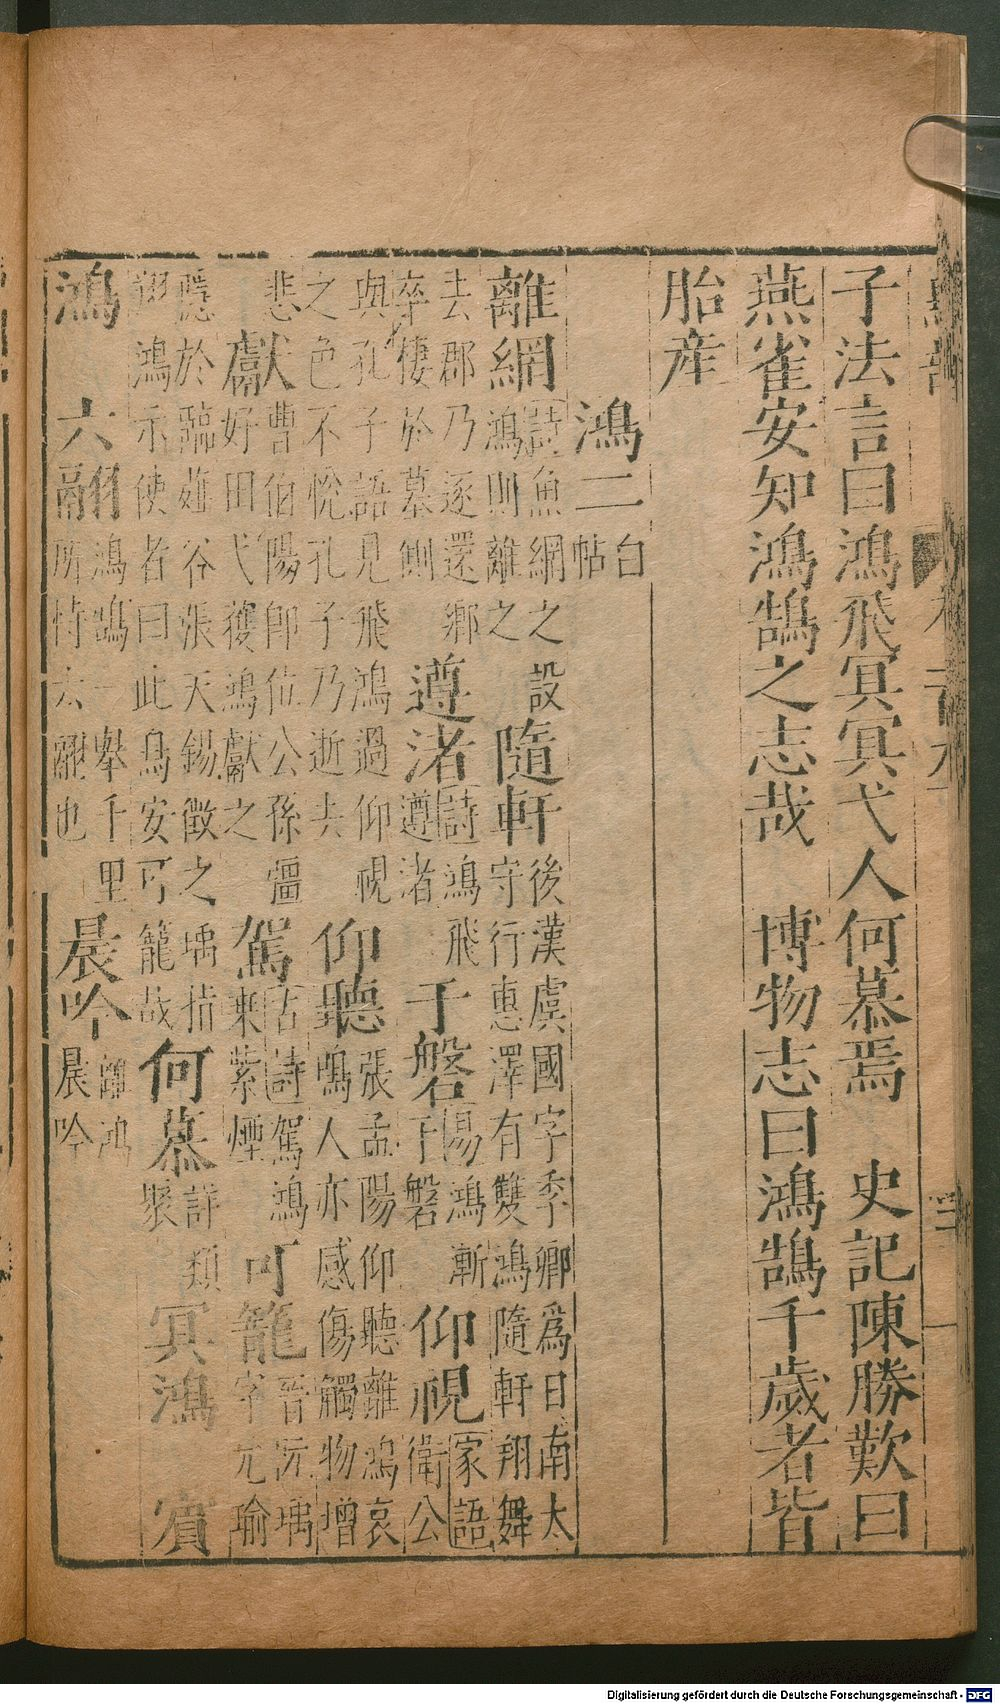 子法言曰鴻飛冥冥弋人何慕焉 史記陳勝歎曰
燕雀安知鴻鵠之志哉 博物志曰鴻鵠千歲者皆
胎産
鴻二 白帖
離網 詩魚網之設鴻則離之 隨軒 後漢虞國字季卿爲日南太守行惠澤有雙鴻隨軒翔舞
去郡乃逐還鄉卒棲於墓側 遵渚 詩鴻飛遵渚 于磐 易鴻漸于磐 仰視 家語衛公
與孔子語見飛鴻過仰視之色不悅孔子乃逝去 仰聽 張孟陽仰聽離鴻哀鳴人亦感傷觸物增
悲 獻 曹伯陽卽位公孫彊好田弋獲鴻獻之 駕 古詩駕鴻來紫煙 可籠 晉阮瑀字元瑜
隱於臨薤谷張天錫徵之瑀指翔鴻示使者曰此鳥安可籠哉 何慕 詳類聚 冥鴻 賓
鴻 六翮 鴻鵠一舉千里所恃六翮也 晨吟 離鴻晨吟
Digitalisierung gefördert durch die Deutsche Forschungsgemeinschaft - DFG